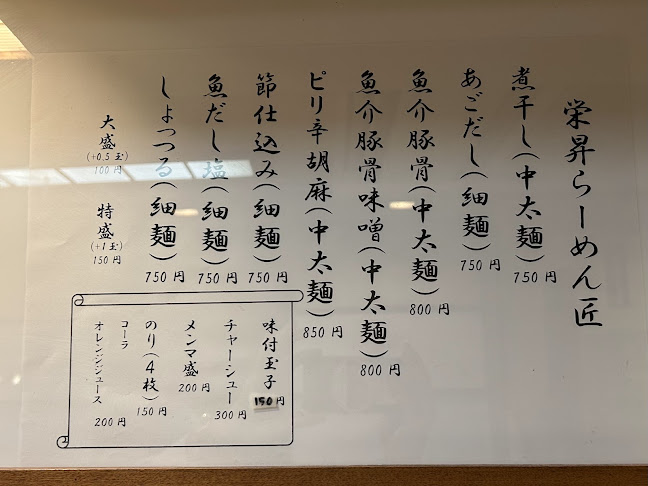 栄昇らーめん匠
煮干し(中太麺)
750円
あごだし(細麺)
750円
魚介豚骨(中太麺)
800円
魚介豚骨味噌(中太麺)
800円
ピリ辛胡麻(中太麺)
850円
節仕込み(細麺)
750円
魚だし塩(細麺)
750円
しょっつる(細麺)
750円
大盛
(+0.5玉)
100円
特盛
(+1玉)
150円
味付玉子
150円
チャーシュー
300円
メンマ盛
200円
のり(4枚)
150円
コーラ
オレンジジュース
200円